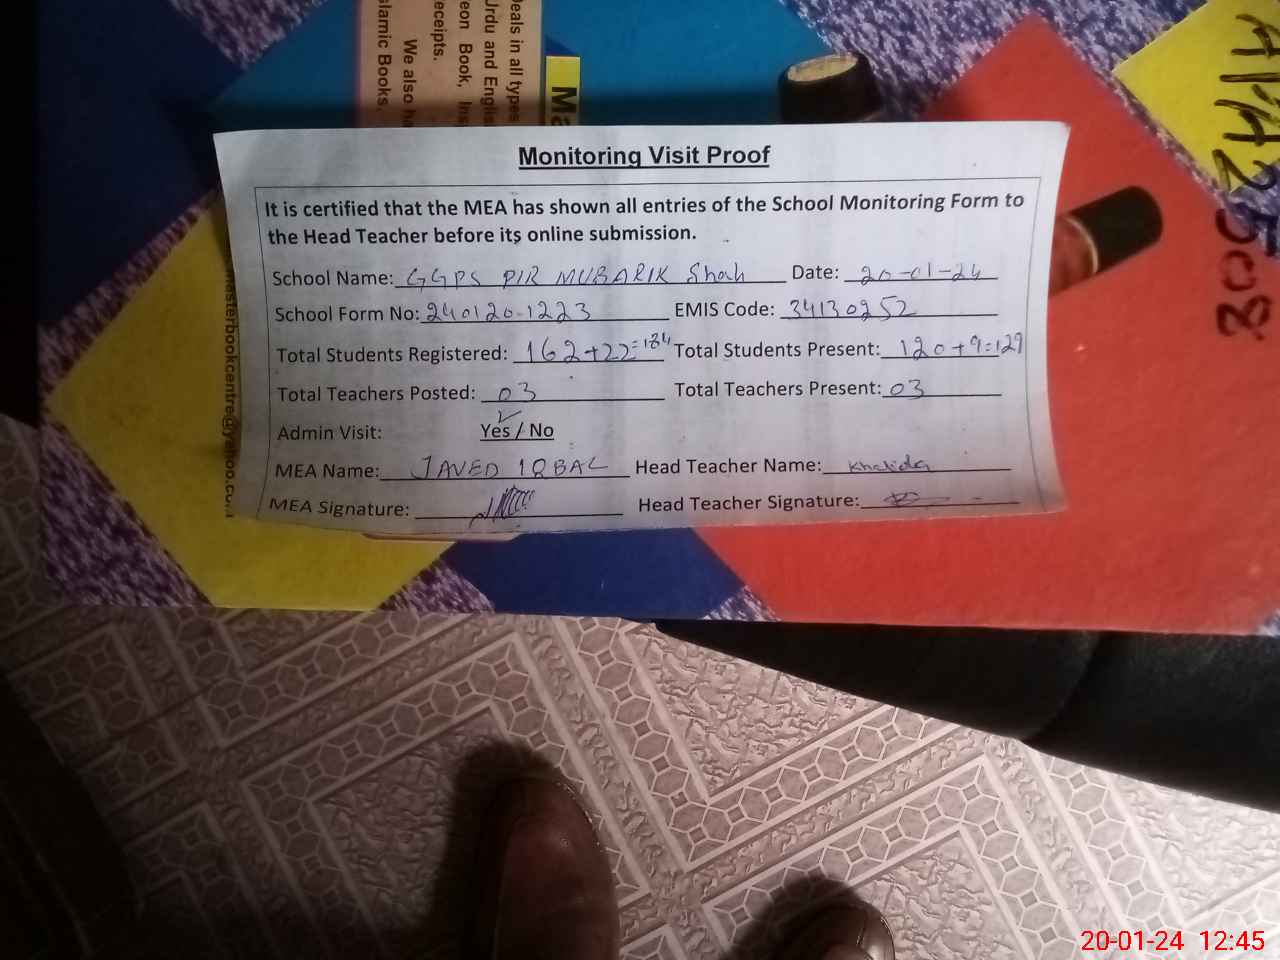 Deals in all types
Urdu and Englis
eon Book, Ins
eceipts.
We also ha
slamic Books.
Ma
Monitoring Visit Proof
It is certified that the MEA has shown all entries of the School Monitoring Form to
the Head Teacher before its online submission.
School Name: GGPS PIR MUBARIK Shah Date: 20-01-24
School Form No: 240120-1223 EMIS Code: 34130252
Total Students Registered: 162+22=184 Total Students Present: 120+9=129
Total Teachers Posted: 03 Total Teachers Present: 03
Admin Visit: Yes / No
MEA Name: JAVED IQBAL Head Teacher Name: Khalida
MEA Signature: Head Teacher Signature:
masterbookcentre@yahoo.co
20-01-24 12:45